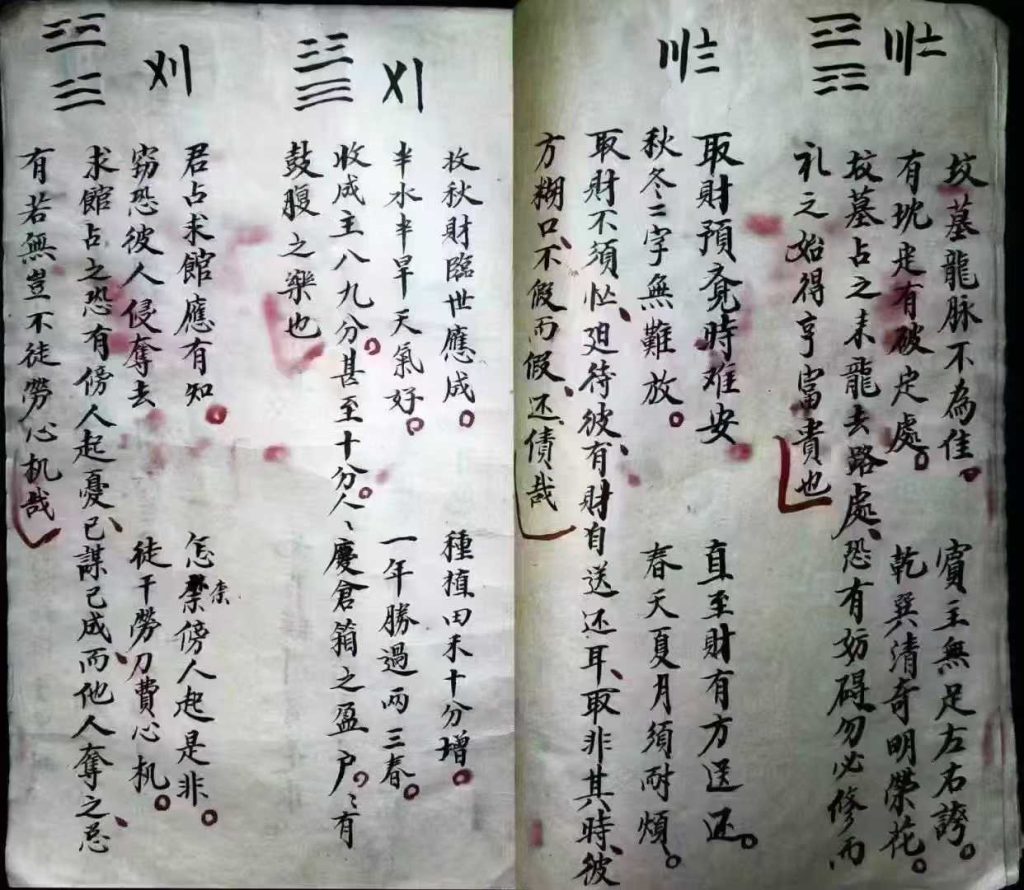 坟墓龍脉不為佳。 賓主無足左右誇。
有坑走有破定處。 乾巽清奇明榮花。
坟墓占之来龍去路處、恐有妨碍勿必修而
礼之始得亨富貴也
取財預覓時难安 直至財有方送还。
秋冬二字無難放。 春天夏月須耐煩。
取財不須忙、廻待彼、有財自送还耳、取非其時、彼
方糊口、不假而假、还債哉
收秋財臨世應成。 種植田禾十分增。
半水半旱天氣好。 一年勝過两三春。
收成主八九分。甚至十分。人、慶倉箱之盈。户、有
鼓腹之樂也
君占求館應有知。 怎傍人起是非。
窃恐彼人侵奪去 徒干勞刀費心机。
求館占之恐有傍人起憂已、謀己成、而他人奪之、忌
有若無豈不徒勞心机哉